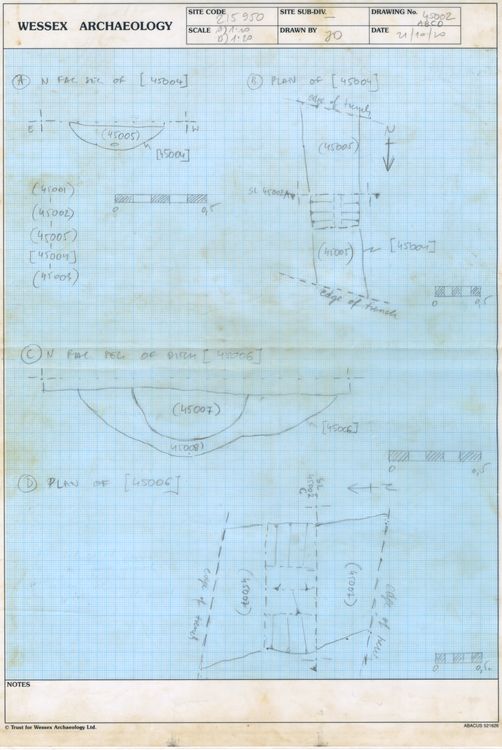 WESSEX ARCHAEOLOGY
SITE CODE 215950
SITE SUB-DIV. —
DRAWING No. 45002
ABCD
SCALE 1:10
D) 1:20
DRAWN BY JO
DATE 21/10/20
A N FAC SEC OF [45004]
E W
(45005)
[45004]
(45001)
(45002)
(45005)
[45004]
(45003)
0 0,5
B PLAN OF [45004]
edge of trench
N
(45005)
SL 45002A
(45005) [45004]
edge of trench
0 0,5
C N FAC SEC OF DITCH [45006]
(45007)
[45006]
(45008)
0 0,5
D PLAN OF [45006]
SL
45002
C
N
edge of trench
(45007)
(45007)
edge of
0 0,5
NOTES
© Trust for Wessex Archaeology Ltd.
ABACUS 521626